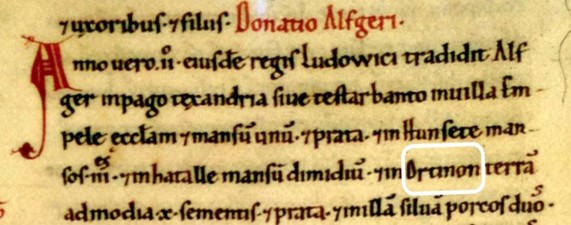 ⁊ uxoribus· ⁊ filiis· Donatio Alfgeri·
Anno uero· ii· eiusdē regis Ludowici tradidit Alf
ger in pago texandria siue testarbanto in uilla Em-
pele eccłam ⁊ mansū unū· ⁊ prata· ⁊ in Hunsete man-
sos· iii· ⁊ in hatalle mansū dimidiū· ⁊ in Ortinon terrā
ad modia· x· sementis· ⁊ prata· ⁊ in illā siluā porcos duos·